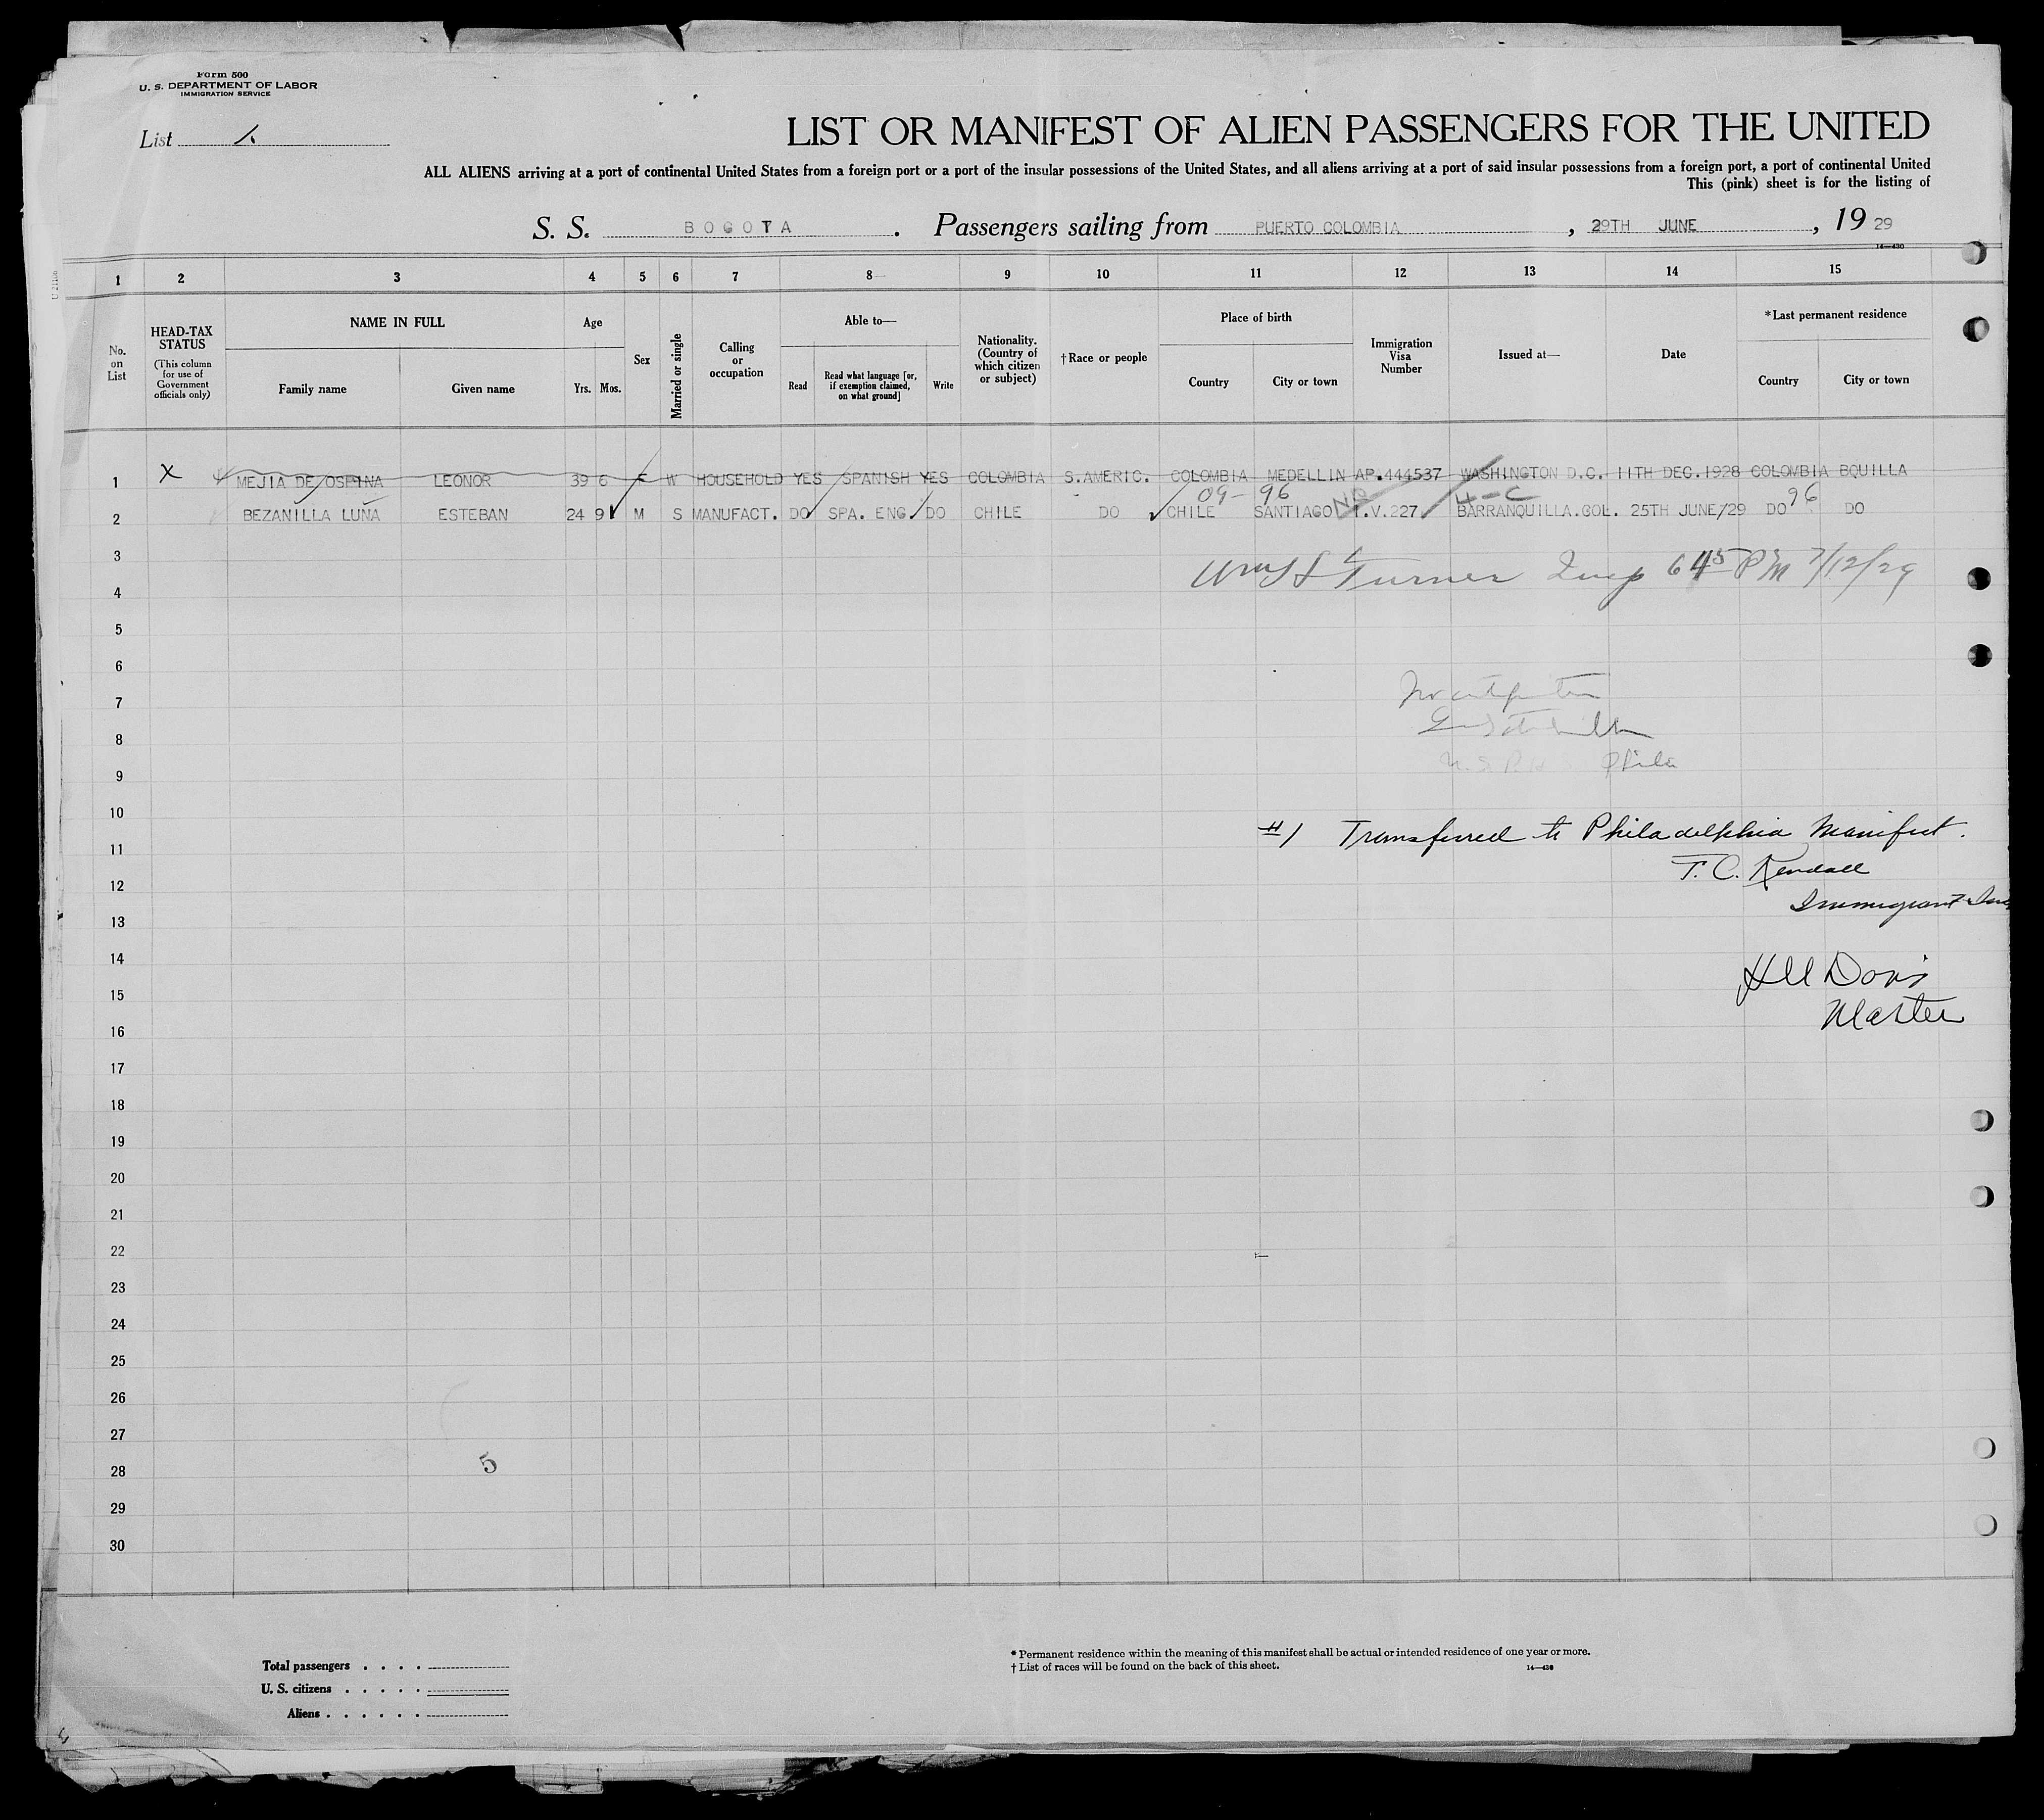 Form 500
U. S. DEPARTMENT OF LABOR
IMMIGRATION SERVICE
List
LIST OR MANIFEST OF ALIEN PASSENGERS FOR THE UNITED
ALL ALIENS arriving at a port of continental United States from a foreign port or a port of the insular possessions of the United States, and all aliens arriving at a port of said insular possessions from a foreign port, a port of continental United
This (pink) sheet is for the listing of
S. S. BOGOTA. Passengers sailing from PUERTO COLOMBIA, 29TH JUNE, 1929
14—430
1 2 3 4 5 6 7 8 9 10 11 12 13 14 15
No. on List
HEAD-TAX STATUS
(This column for use of Government officials only)
NAME IN FULL
Family name Given name
Age
Yrs. Mos.
Sex
Married or single
Calling or occupation
Able to—
Read
Read what language [or, if exemption claimed, on what ground]
Write
Nationality. (Country of which citizen or subject)
†Race or people
Place of birth
Country City or town
Immigration Visa Number
Issued at—
Date
*Last permanent residence
Country City or town
1 X MEJIA DE OSPINA LEONOR 39 6 F W HOUSEHOLD YES SPANISH YES COLOMBIA S.AMERIC. COLOMBIA MEDELLIN AP.444537 WASHINGTON D.C. 11TH DEC.1928 COLOMBIA BQUILLA
09-96 4-C 96
2 BEZANILLA LUNA ESTEBAN 24 9 M S MANUFACT. DO SPA. ENG. DO CHILE DO CHILE SANTIAGO T.V.227 BARRANQUILLA.COL. 25TH JUNE/29 DO DO
3
Turner Insp 6 45 PM 7/12/29
4
5
6
7
8
9
Phila
10
#1 Transferred to Philadelphia Manifest.
11
T. C. Kendall
12
Immigrant Insp
13
14
Davis
15
Master
16
17
18
19
20
21
22
23
24
25
26
27
5
28
29
30
Total passengers . . . .
U. S. citizens . . . . .
Aliens . . . . . .
* Permanent residence within the meaning of this manifest shall be actual or intended residence of one year or more.
† List of races will be found on the back of this sheet.
14—430